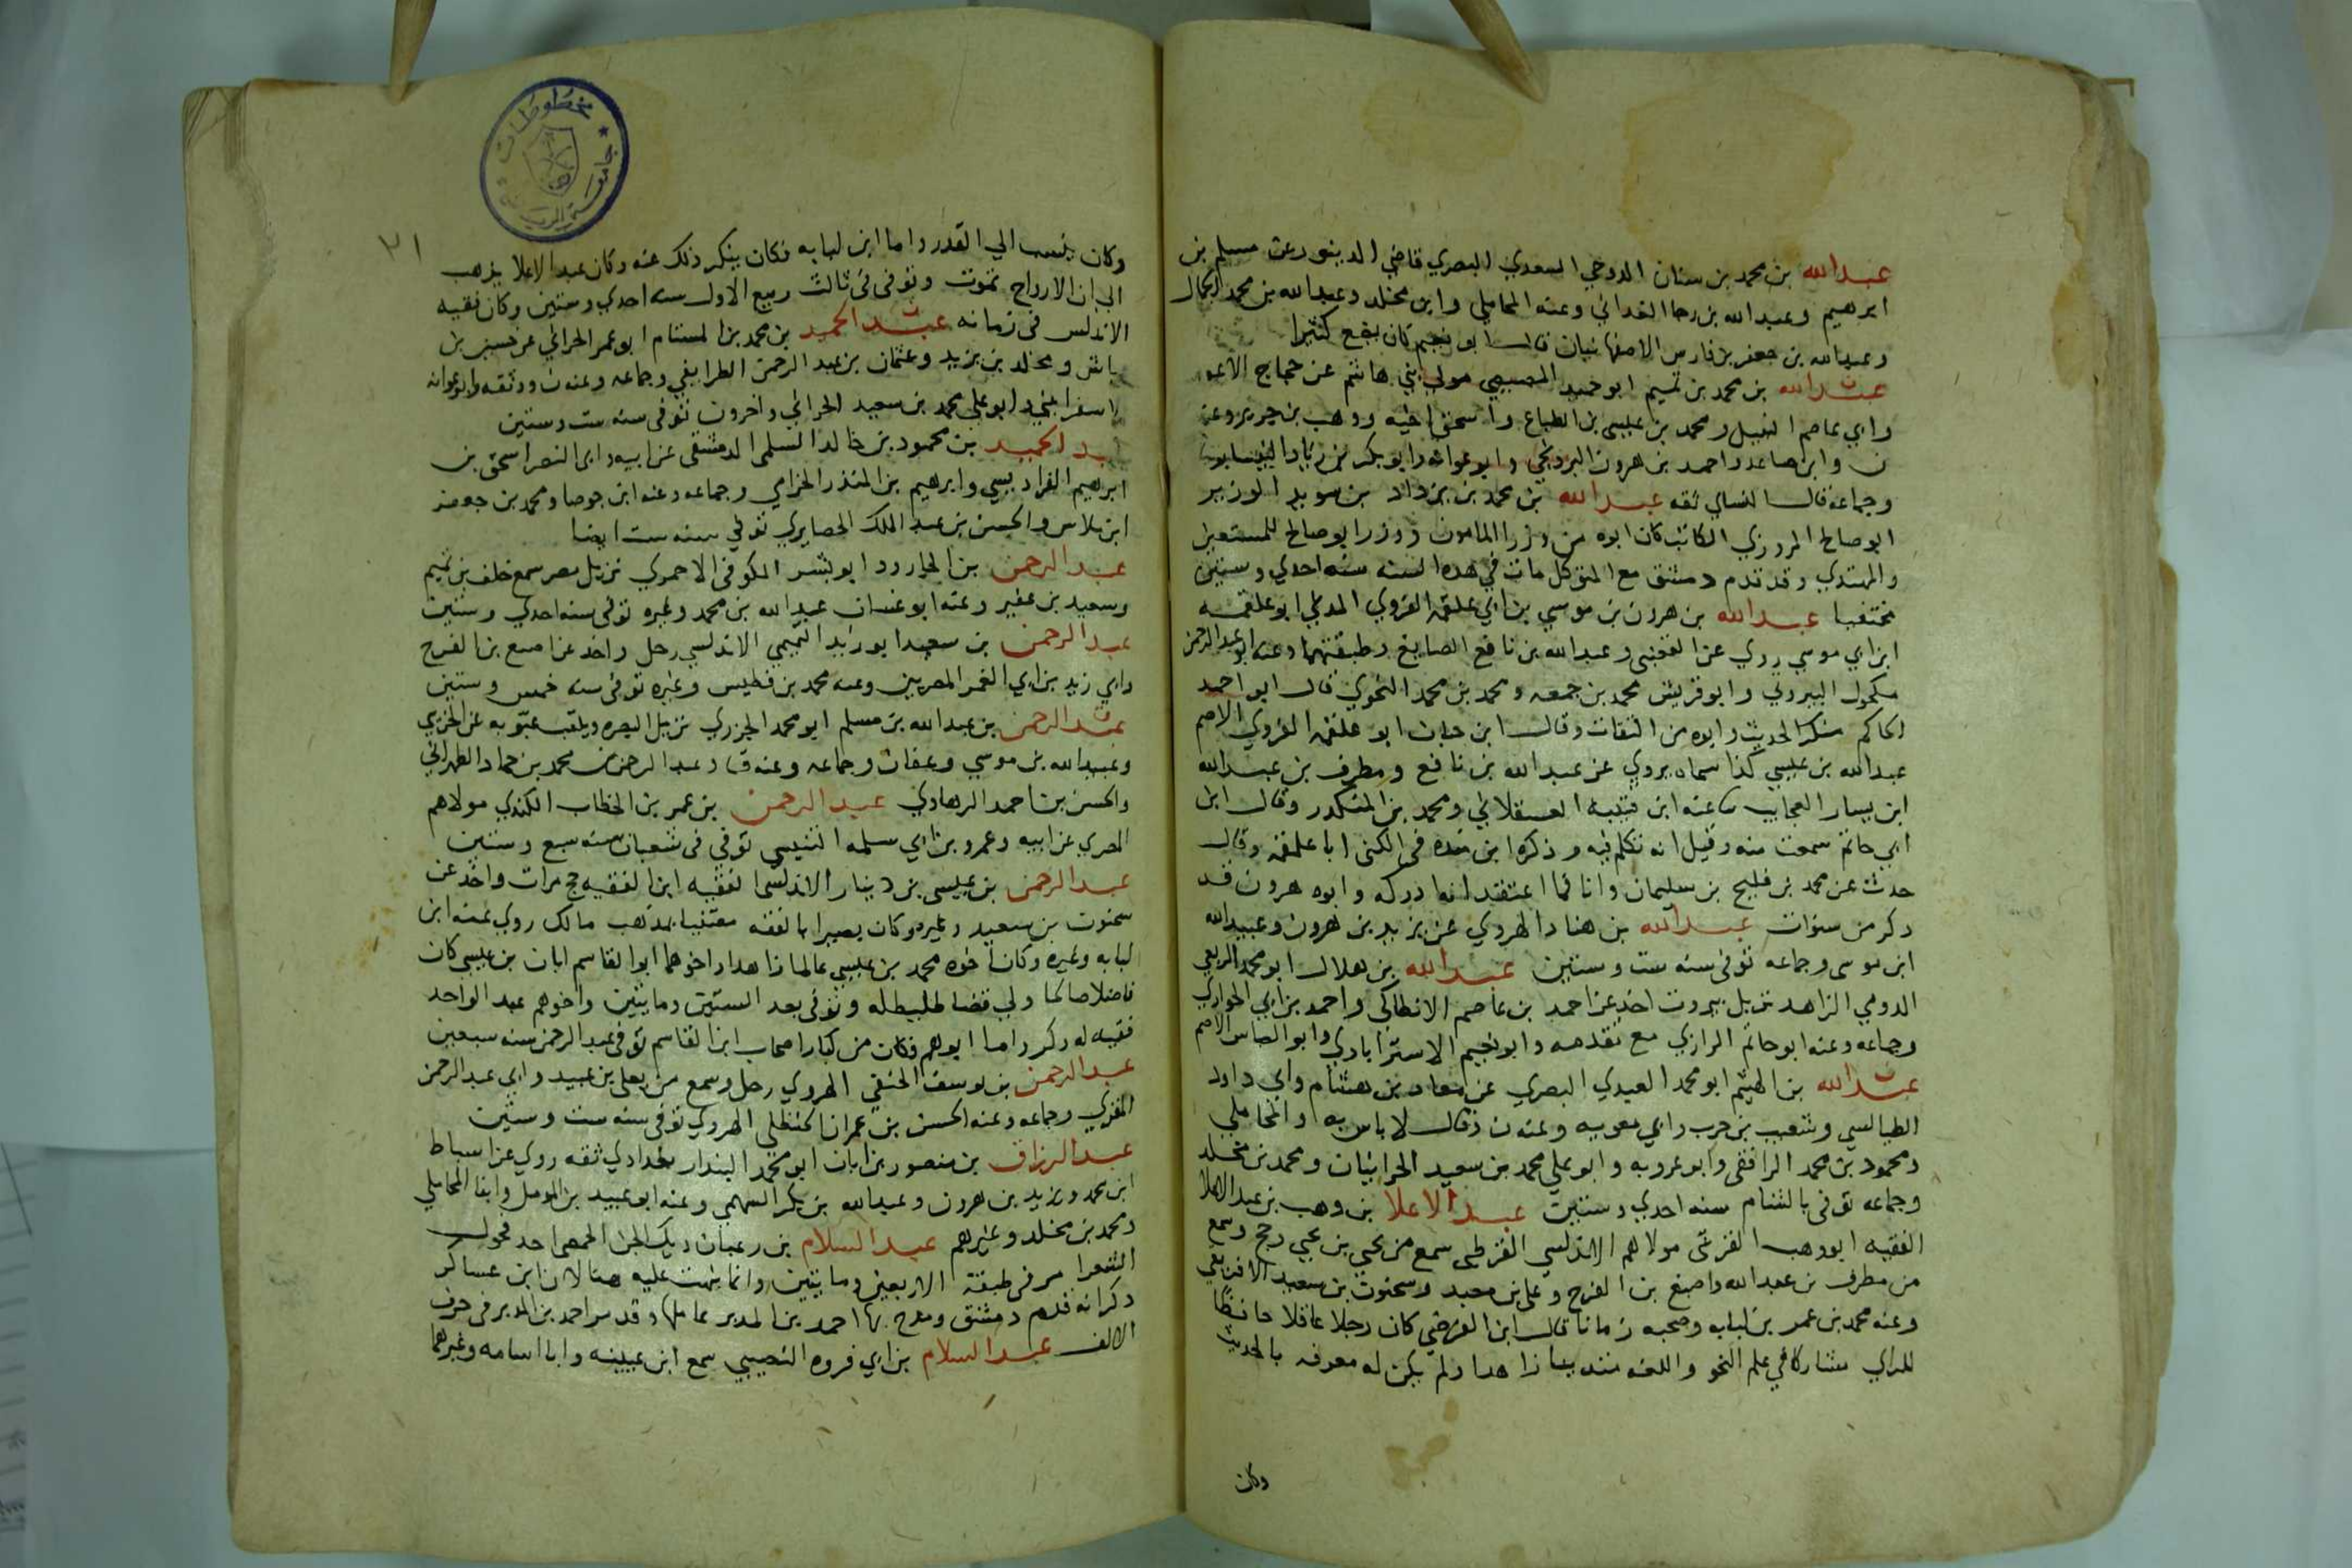 عبد الله بن محمد بن سنان الدوحي السعدي البصري قاضي الدينور عن مسلم بن
ابرهيم وعبد الله بن رجا الغداني وعنه المحاملي وابن مخلد وعبد الله بن محمد الجمال
وعبد الله بن جعفر بن فارس الاصفهانيان قال ابو نعيم كان يضع كثيرا
عبد الله بن محمد بن تميم ابو حميد المصيصي مولى بني هاشم عن حجاج الاعور
وابي عاصم النبيل ومحمد بن عيسى بن الطباع واسحق اخيه ووهب بن جرير وعنه
ن وابن صاعد واحمد بن هرون البرديجي وابو عوانه وابو بكر بن زياد النيسابوري
وجماعة قال النساي ثقه عبد الله بن محمد بن يزداد بن سويد الوزير
ابو صالح المروزي الكاتب كان ابوه من وزرا المامون ووزر ابو صالح للمستعين
والمهتدي وقد قدم دمشق مع المتوكل مات في هذه السنه سنه احدي وستين
مختفيا عبد الله بن هرون بن موسي بن ابي علقمه الفروي المدني ابو علقمه
ابن ابي موسي روي عن القعنبي وعبد الله بن نافع الصايغ وطبقتهما وعنه ابو عبد الرحمن
مكحول البيروتي وابو قريش محمد بن جمعه ومحمد بن محمد النحوي قال ابو احمد
الحاكم منكر الحديث وابوه من الثقات وقال ابن حبان ابو علقمه الفروي الاصم
عبد الله بن عيسي كذا سماه يروي عن عبد الله بن نافع ومطرف بن عبد الله
ابن يسار العجايب عنه ابن قتيبه العسقلاني ومحمد بن المنكدر وقال ابن
ابي حاتم سمعت منه وقيل انه تكلم فيه وذكره ابن منده في الكنى ابا علقمه وقال
حدث عن محمد بن فليح بن سليمان وانا فما اعتقد انه ادركه وابوه هرون قد
ذكر من سنوات عبد الله بن هناد الهروي عن يزيد بن هرون وعبيد الله
ابن موسى وجماعه توفى سنه ست وستين عبد الله بن هلال ابو محمد الربعي
الدومي الزاهد نزيل بيروت اخذ عن احمد بن عاصم الانطاكي واحمد بن ابي الحواري
وجماعه وعنه ابو حاتم الرازي مع تقدمه وابو نعيم الاستراباذي وابو العباس الاصم
عبد الله بن الهيثم ابو محمد العبدي البصري عن معاذ بن هشام وابي داود
الطيالسي وشعيب بن حرب وابي معويه وعنه ن وقال لا باس به والمحاملي
ومحمود بن محمد الرافقي وابو عروبه وابو علي محمد بن سعيد الحرانيان ومحمد بن مخلد
وجماعه توفى بالشام سنه احدي وستين عبد الاعلا بن وهب بن عبد الاعلا
الفقيه ابو وهب القرشى مولاهم الاندلسي القرطبي سمع من يحيي بن يحيي وحج وسمع
من مطرف بن عبد الله واصبغ بن الفرج وعلي بن معبد وسحنون بن سعيد الافريقي
وعنه محمد بن عمر بن لبابه وصحبه زمانا قال ابن الفرضي كان رجلا عاقلا حافظا
للراي مشاركا في علم النحو واللغه متدينا زاهدا ولم يكن له معرفه بالحديث
وكان
مخطوطات
جامعة الرياض
٢١
وكان ينسب الي القدر واما ابن لبابه فكان ينكر ذلك عنه وكان عبد الاعلا يذهب
الي ان الارواح تموت وتوفى في ثالث ربيع الاول سنه احدي وستين وكان فقيه
الاندلس في زمانه عبد الحميد بن محمد بن المستام ابو عمر الحراني عن حسين بن
ياش ومخلد بن يزيد وعثمان بن عبد الرحمن الطرايفي وجماعه وعنه ن ووثقه وابو عوانه
اسفرايني وابو علي محمد بن سعيد الحراني واخرون توفى سنه ست وستين
بد الحميد بن محمود بن خالد السلمى الدمشقى عن ابيه وابى النضر اسحق بن
ابرهيم الفراديسي وابرهيم بن المنذر الحزامي وجماعه وعنه ابن جوصا ومحمد بن جعفر
ابن ملاس والحسن بن عبد الملك الحصايري توفي سنه ست ايضا
عبد الرحمن بن الجارود ابو بشر الكوفى الاحمري نزيل مصر سمع خلف بن تميم
وسعيد بن عفير وعنه ابو غسان عبد الله بن محمد وغيره توفى سنه احدي وستين
عبد الرحمن بن سعيد ابو زيد التميمي الاندلسي رحل واخذ عن اصبغ بن الفرج
وابي زيد بن ابي الغمر المصريين وعنه محمد بن فطيس وغيره توفى سنه خمس وستين
عبد الرحمن بن عبد الله بن مسلم ابو محمد الجزري نزيل البصره ويلقب عبويه عن الخريبي
وعبيد الله بن موسي وعفان وجماعه وعنه ق وعبد الرحمن بن محمد بن حماد الطهراني
والحسن بن احمد الرهاوي عبد الرحمن بن عمر بن الخطاب الكندي مولاهم
المصري عن ابيه وعمرو بن ابي سلمه التنيسي توفي فى شعبان سنه سبع وستين
عبد الرحمن بن عيسى بن دينار الاندلسى الفقيه ابن الفقيه حج مرات واخذ عن
سحنون بن سعيد وغيره وكان بصيرا بالفقه معتنيا بمذهب مالك روي عنه ابن
لبابه وغيره وكان اخوه محمد بن عيسي عالما زاهدا واخوهما ابو القاسم ابان بن عيسي كان
فاضلا صالحا ولي قضا طليطله وتوفى بعد الستين ومايتين واخوهم عبد الواحد
فقيه له ذكر واما ابوهم فكان من كبار اصحاب ابن القاسم توفى عبد الرحمن سنه سبعين
عبد الرحمن بن يوسف الحنفي الهروي رحل وسمع من يعلي بن عبيد وابي عبد الرحمن
المقري وجماعه وعنه الحسن بن عمران الحنظلي الهروي توفى سنه ست وستين
عبد الرزاق بن منصور بن ابان ابو محمد البندار بغدادي ثقه روي عن اسباط
ابن محمد ويزيد بن هرون وعبد الله بن بكر السهمي وعنه ابو عبيد بن المومل وابنا المحاملي
ومحمد بن مخلد وغيرهم عبد السلام بن رغبان ديك الجن الحمصي احد فحول
الشعرا مر فى طبقة الاربعين ومايتين وانما نبهت عليه هنا لان ابن عساكر
ذكر انه قدم دمشق ومدح بها احمد بن المدبر عاملها وقد مر احمد بن المدبر فى حرف
الالف عبد السلام بن ابي فروه النصيبي سمع ابن عيينه وابا اسامه وغيرهما